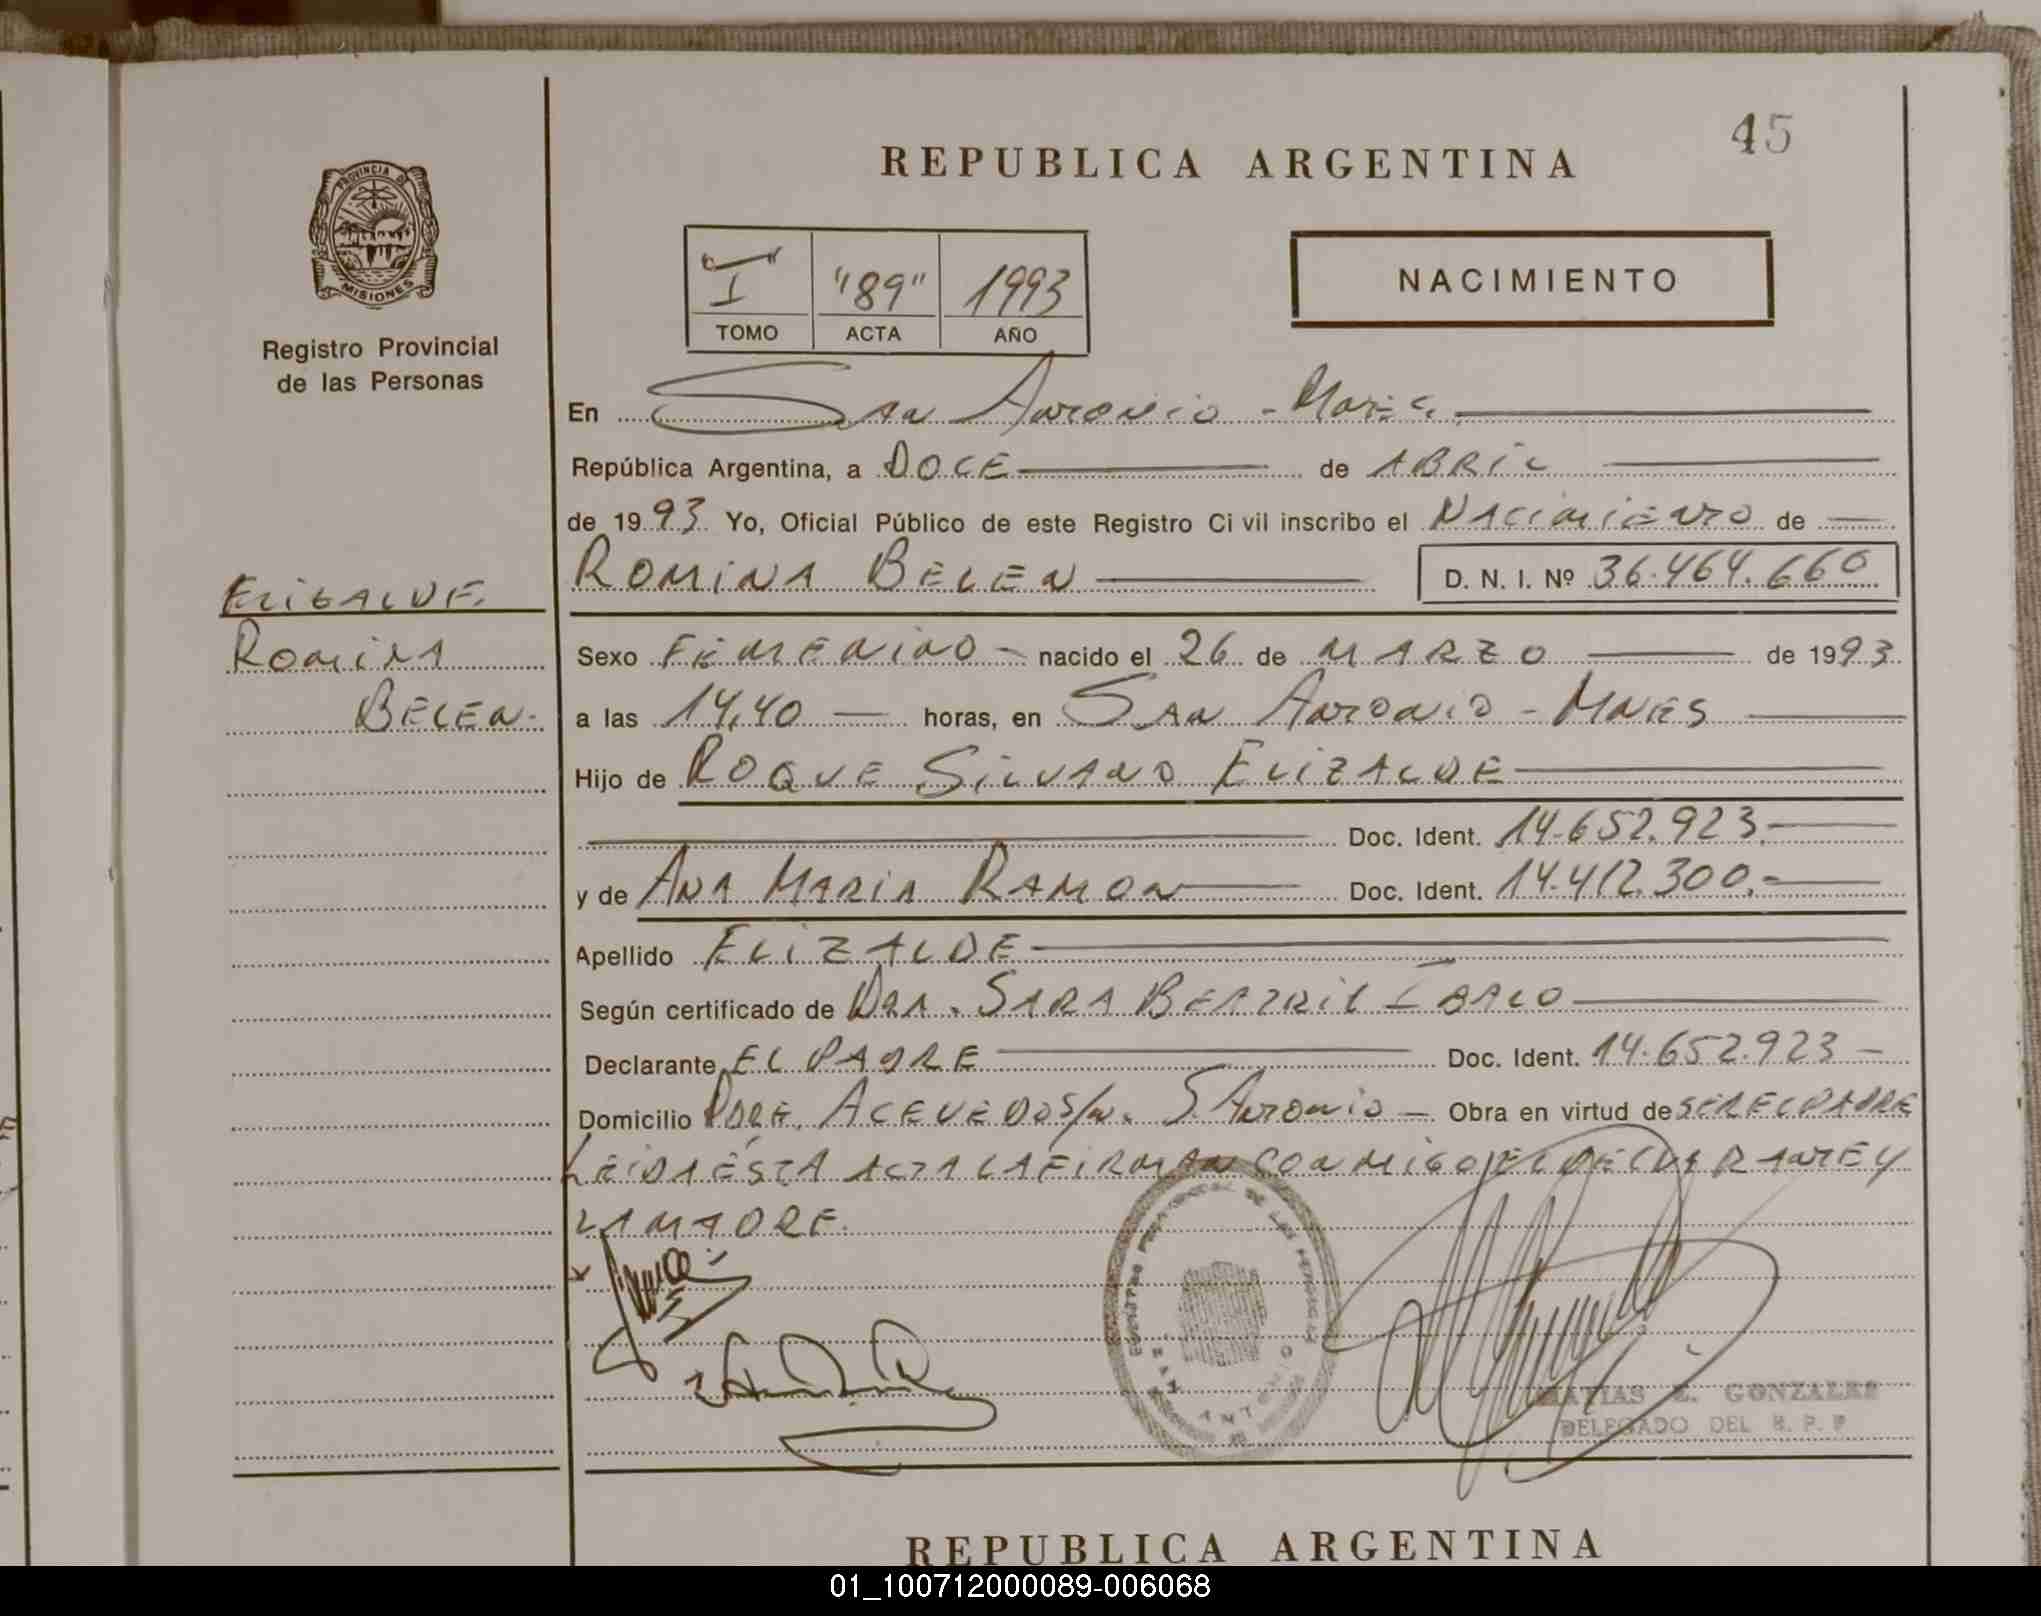 45
REPUBLICA ARGENTINA
PROVINCIA DE
MISIONES
Registro Provincial
de las Personas
I "89" 1993
TOMO ACTA AÑO
NACIMIENTO
En San Antonio - Mnes.
República Argentina, a DOCE de ABRIL
de 1993 Yo, Oficial Público de este Registro Civil inscribo el Nacimiento de
ROMINA BELEN D. N. I. Nº 36.464.660
ELIZALDE.
ROMINA
BELEN.
Sexo FEMENINO - nacido el 26 de MARZO de 1993
a las 14,40 horas, en SAN ANTONIO - MNES
Hijo de ROQUE SILVANO ELIZALDE
Doc. Ident. 14.652.923.
y de ANA MARIA RAMON Doc. Ident. 14.412.300.-
Apellido ELIZALDE
Según certificado de DRA. SARA BEATRIZ
Declarante EL PADRE Doc. Ident. 14.652.923 -
Domicilio ACEVEDO S/N. S. ANTONIO - Obra en virtud de SER EL PADRE
LEIDA ESTA ACTA LA FIRMAN CONMIGO EL DECLARANTE Y
LA MADRE.
MATIAS E. GONZALEZ
DELEGADO DEL R. P. P
REPUBLICA ARGENTINA
01_100712000089-006068